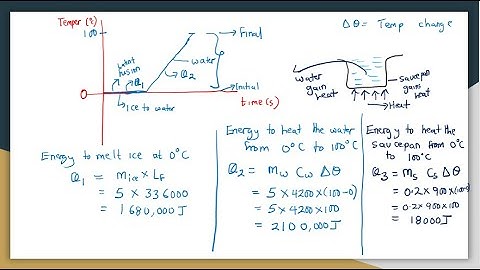 Temper (°C)
100
0
latent
fusion
Q1
Ice to water
water
Q2
Final
Initial
time(s)
Δθ = Temp change
water
gain
heat
saucepan
gain
heat
Heat
Energy to melt ice at 0°C
Q1 = mice × Lf
= 5 × 336000
= 1680,000J
Energy to heat the water
from 0°C to 100°C
Q2 = mw Cw Δθ
= 5 × 4200 × (100-0)
= 5 × 4200 × 100
= 2100,000J
Energy to heat the
saucepan from 0°C
to 100°C
Q3 = ms Cs Δθ
= 0.2 × 900 × (100-0)
= 0.2 × 900 × 100
= 18000J